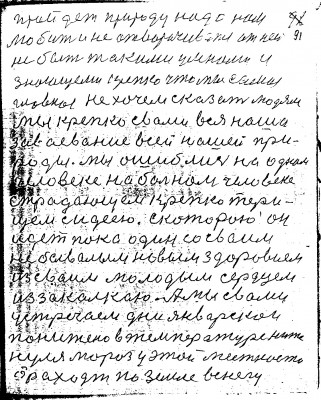 пройдет природу надо нам
любить и не отворачиватся от ней 91
не быть такими умными и
знающеми крепко что мы самые
главное не хочем сказать людям
мы крепко с вами вся наша
завевание всей нашей при-
роды. мы ошиблись на одном
человеке на больном человеке
страдающем крепко терп-
щем с идеею, с которою он
идет пока один со своим
небывалым новым здоровием
и своим молодым сердцем
из закалкаю. А мы с вами
встречаем дни январской
понижено в температуре ниже
нуля мороз у этой местности
с ходят по земле в снегу